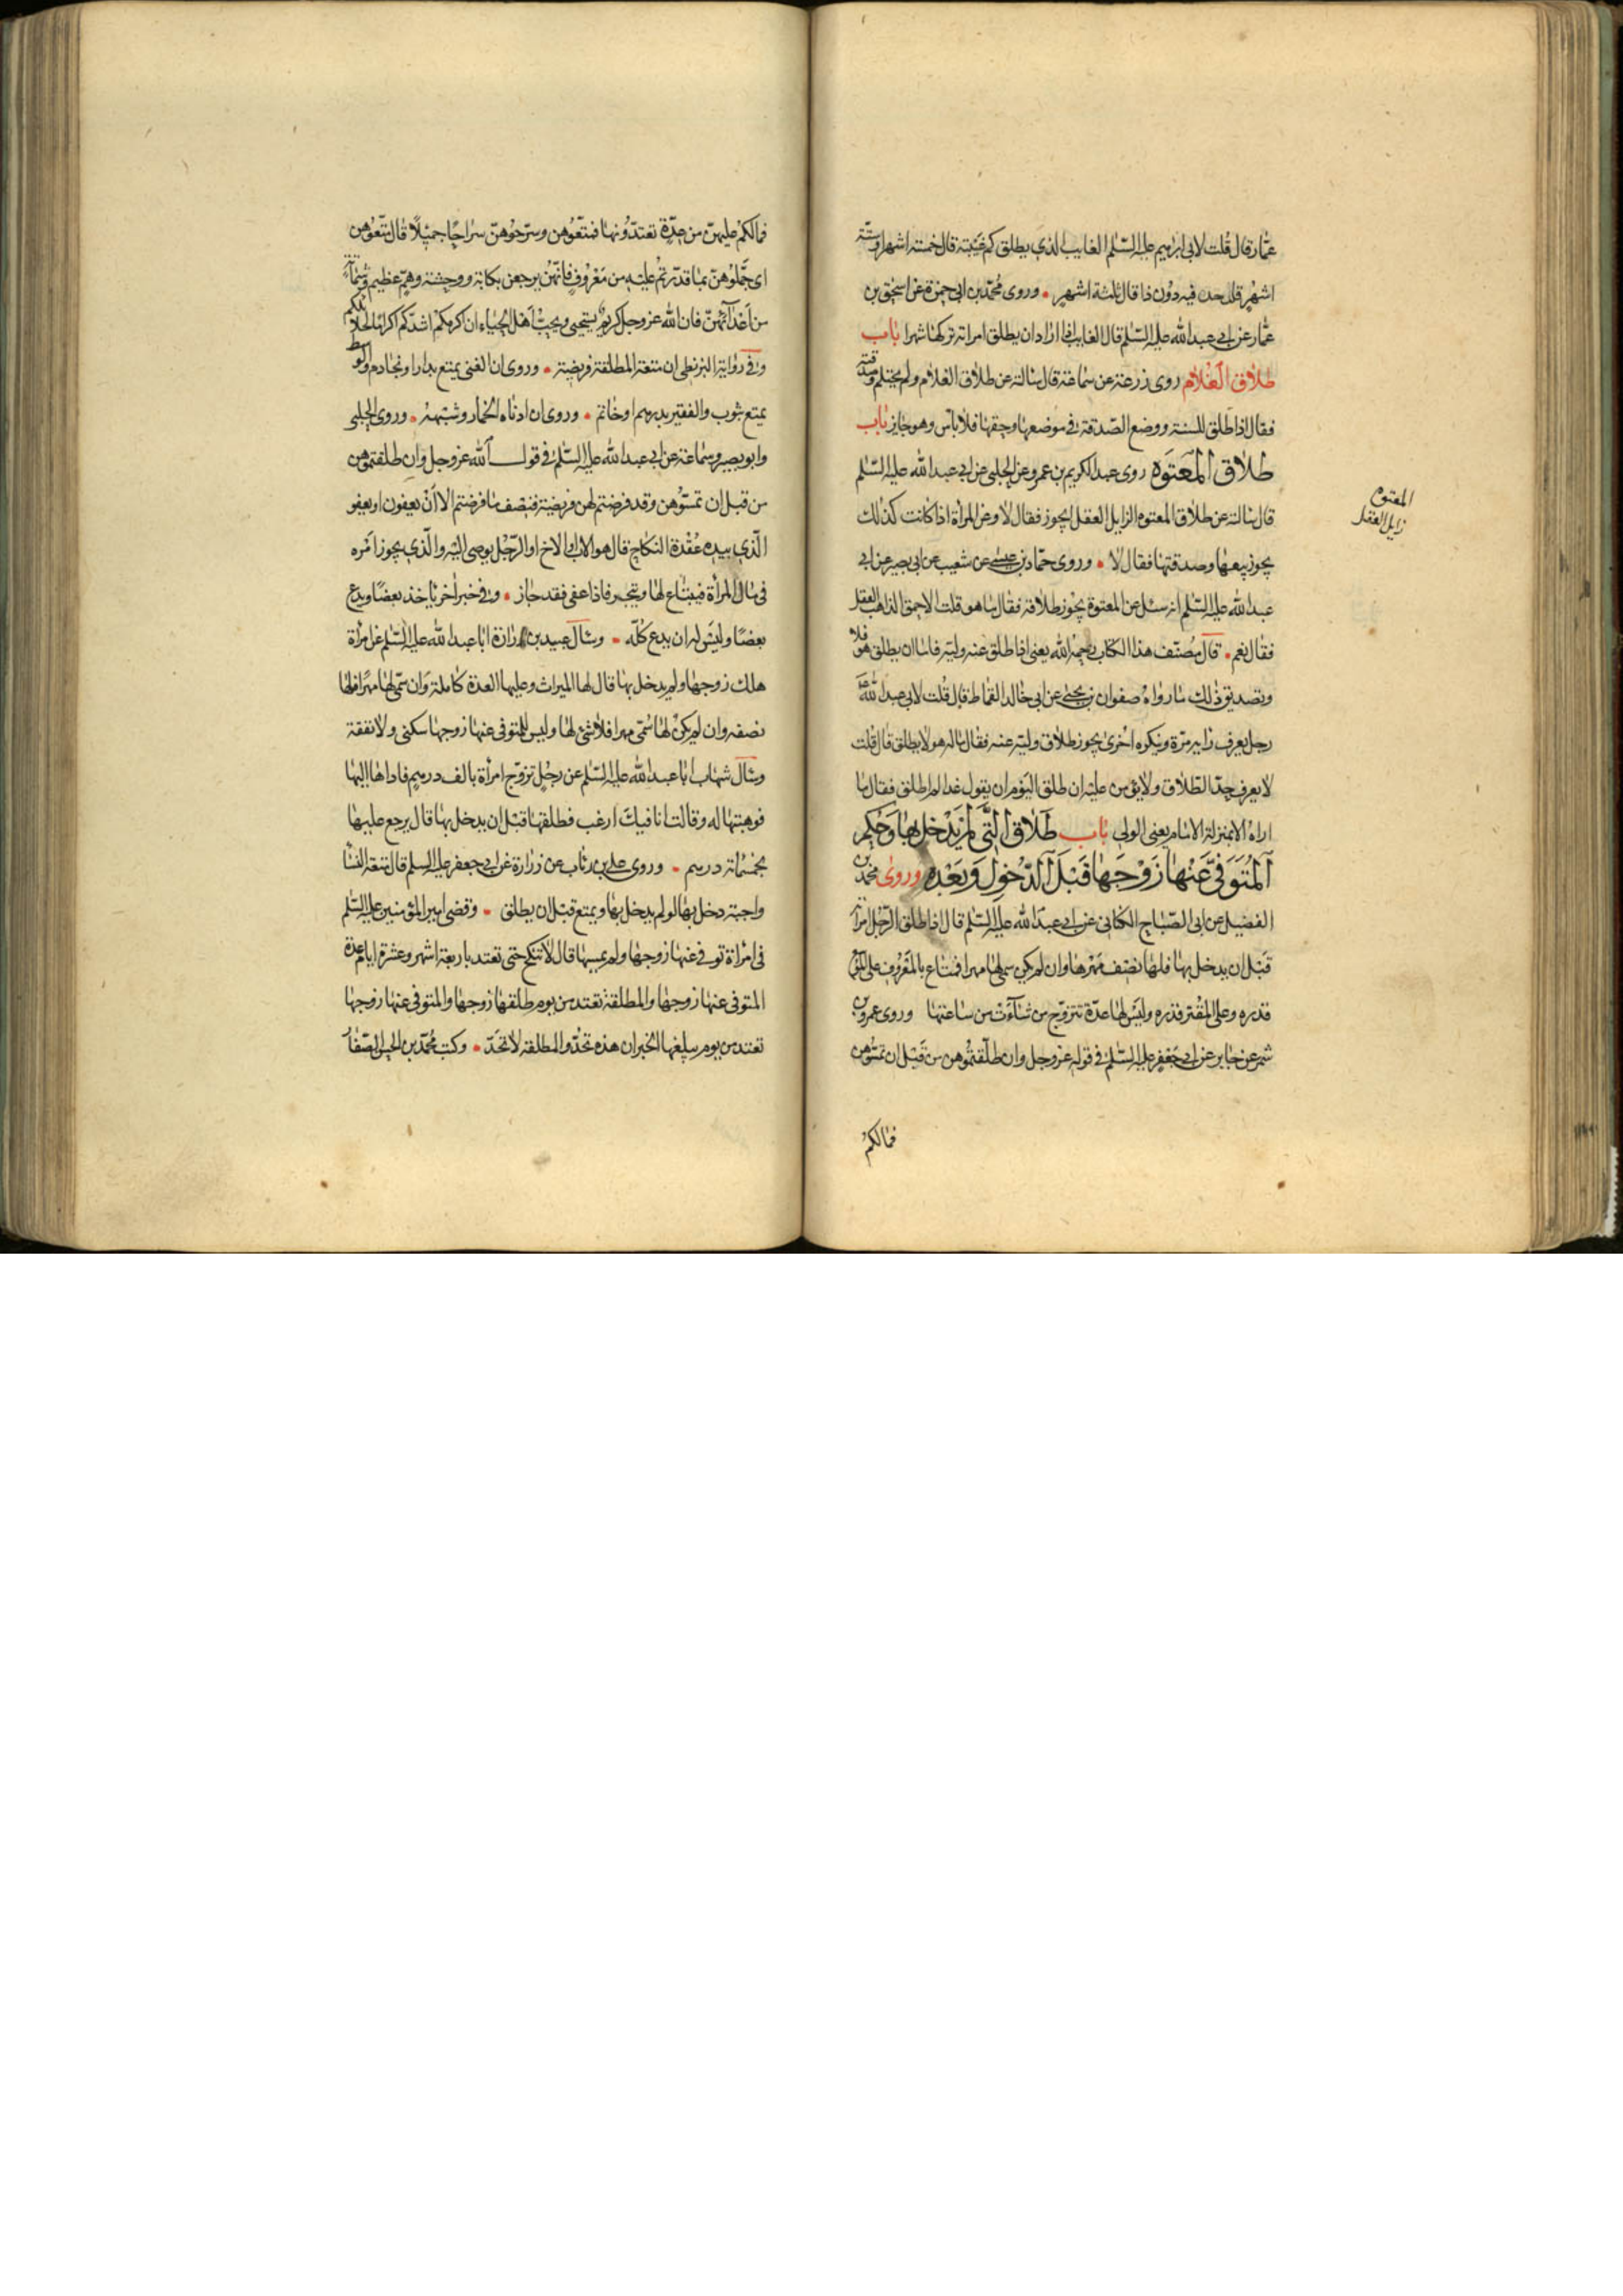 عمّار قال قلت لابي ابرهيم عليه السّلم الغايب الذي يطلق كم غيبته قال خمسة اشهر او ستّة
اشهر قلت حد فيه دون ذا قال ثلثة اشهر وروى محمّد بن ابي حمزة عن اسحق بن
عمّار عن ابي عبد الله عليه السّلم قال الغايب اذا اراد ان يطلق امراته تركها شهرا باب
طلاق الغلام روى زرعة عن سماعة قال سالته عن طلاق الغلام ولم يحتلم وصدقته
فقال اذا طلق للسنة ووضع الصّدقة في موضعها وحقها فلا بأس وهو جايز باب
طلاق المعتوه روى عبد الكريم بن عمرو عن الحلبي عن ابي عبد الله عليه السّلم
قال سالته عن طلاق المعتوه الزايل العقل ايجوز فقال لا وعن المرأة اذا كانت كذلك
يجوز بيعها وصدقتها فقال لا وروى حمّاد بن عيسى عن شعيب عن ابي بصير عن ابي
عبد الله عليه السّلم انه سئل عن المعتوه يجوز طلاقه فقال ما هو قلت الاحمق الذاهب العقل
فقال نعم قال مصنّف هذا الكتاب رحمه الله يعني اذا طلق عنه وليّه فاما ان يطلق هو فلا
وتصديق ذلك ما رواه صفوان بن يحيى عن ابي خالد القماط قال قلت لابي عبد الله
رجل يعرف رأيه مرّة وينكره اخرى يجوز طلاق وليّه عنه فقال ماله هو لا يطلق قال قلت
لا يعرف حدّ الطّلاق ولا يؤمن عليه ان طلق اليوم ان يقول غدا لم اطلق فقال ما
اراه الا بمنزلة الامام يعني الولي باب طلاق الّتي لم يدخل بها وحكم
المتوفّى عنها زوجها قبل الدّخول وبعده وروى محمّد بن
الفضيل عن ابي الصّباح الكناني عن ابي عبد الله عليه السّلم قال اذا طلق الرّجل امرأته
قبل ان يدخل بها فلها نصف مهرها وان لم يكن سمى لها مهرا فمتاع بالمعروف على الموسع
قدره وعلى المقتر قدره وليس لها عدّة تتزوّج من شاءت من ساعتها وروى عمرو بن
شمر عن جابر عن ابي جعفر عليه السّلم في قوله عز وجل وان طلّقتموهن من قبل ان تمسّوهن
فمالكم
المعتوه
زايل العقل
فمالكم عليهنّ من عدّة تعتدّونها فمتّعوهن وسرّحوهنّ سراحا جميلا قال متّعوهن
اى جمّلوهنّ بما قدرتم عليه من معروف فانّهنّ يرجعن بكابة ووحشة وهمّ عظيم وشماتة
من اعدائهنّ فان الله عز وجل كريم يستحيى ويحبّ اهل الحياء ان اكرمكم اشدّكم اكراما لحلائلكم
وفي رواية البزنطى ان متعة المطلقة فريضة وروى ان الغنى يمتع بدار او خادم والوسط
يمتع بثوب والفقير بدرهم او خاتم وروى ان ادناه الخمار وشبهه وروى الحلبي
وابو بصير وسماعة عن ابي عبد الله عليه السّلم في قول الله عز وجل وان طلقتموهن
من قبل ان تمسّوهن وقد فرضتم لهن فريضة فنصف ما فرضتم الا أن يعفون او يعفو
الّذي بيده عقدة النكاح قال هو الاب او الاخ او الرّجل يوصى اليه والّذي يجوز أمره
في مال المرأة فيبتاع لها ويتجر فاذا عفى فقد جاز وفي خبر آخر ياخذ بعضا ويدع
بعضا وليس له ان يدع كلّه وسأل عبيد بن زرارة ابا عبد الله عليه السّلم عن امرأة
هلك زوجها ولم يدخل بها قال لها الميراث وعليها العدة كاملة وان سمّى لها مهرا فلها
نصفه وان لم يكن لها سمّى مهرا فلا شئ لها وليس للمتوفى عنها زوجها سكنى ولا نفقة
وسأل شهاب ابا عبد الله عليه السّلم عن رجل تزوّج امرأة بالف درهم فاداها اليها
فوهبتها له وقالت انا فيك ارغب فطلقها قبل ان يدخل بها قال يرجع عليها
بخمسمأة درهم وروى علي بن رئاب عن زرارة عن ابي جعفر عليه السلم قال متعة النسأ
واجبة دخل بها او لم يدخل بها ويمتع قبل ان يطلق وقضى امير المؤمنين عليه السّلم
في امرأة توفي عنها زوجها ولم يمسها قال لا تنكح حتى تعتد باربعة اشهر وعشرة ايام عدة
المتوفى عنها زوجها والمطلقة تعتد من يوم طلقها زوجها والمتوفى عنها زوجها
تعتد من يوم يبلغها الخبر ان هذه تحدّ والمطلقة لا تحدّ وكتب محمّد بن الحسن الصّفار